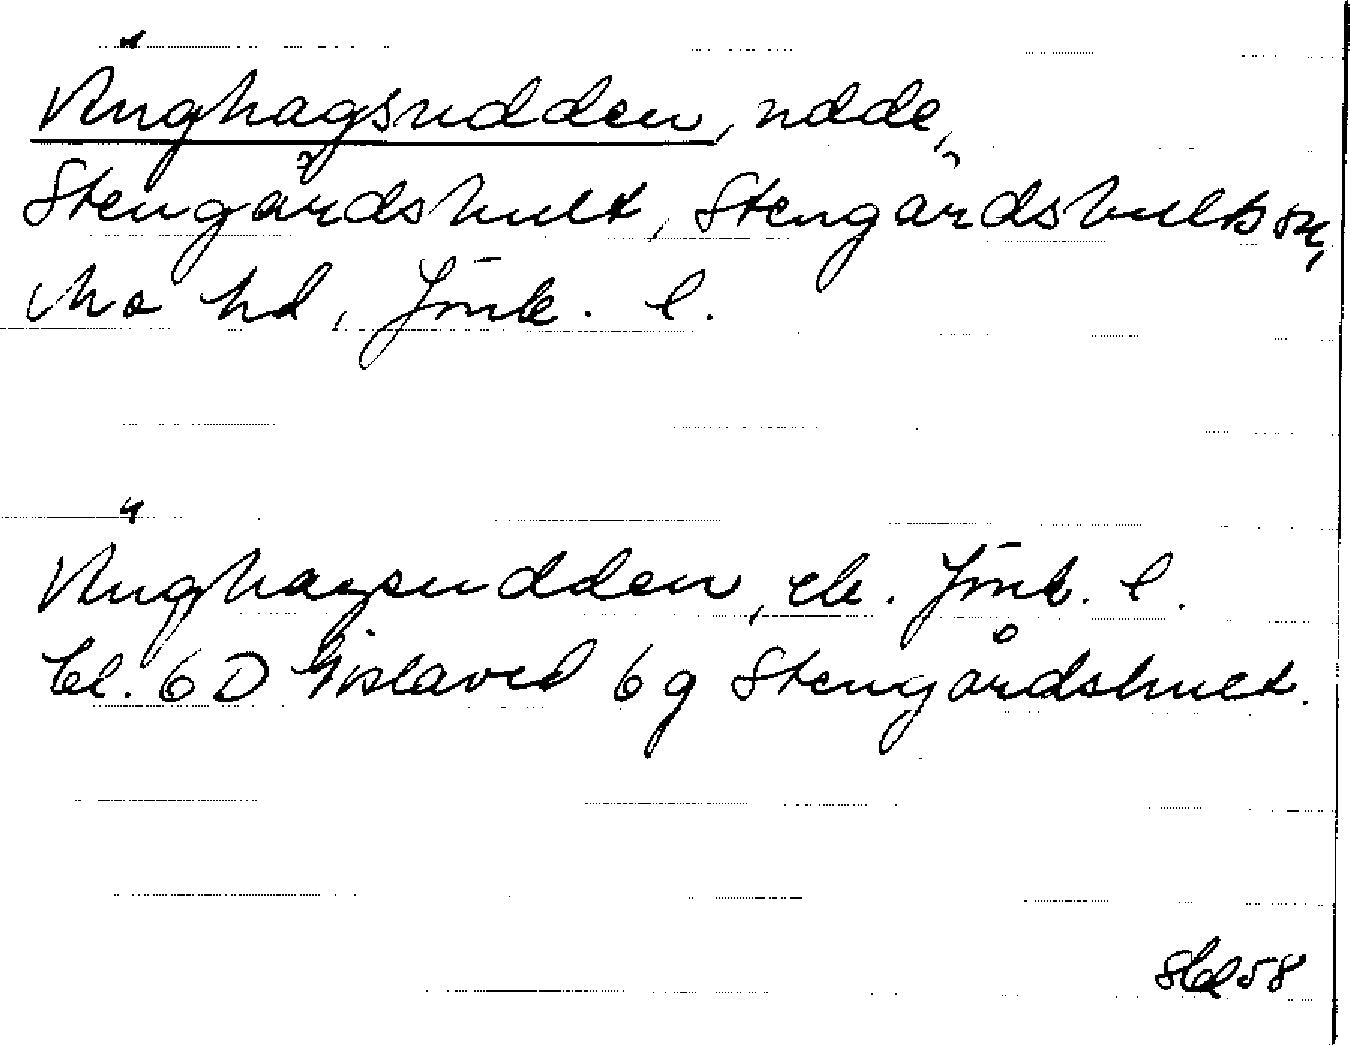 Änghagsudden, udde,
Stengårdshult, Stengårdshults sn,
Mo hd, Jönk. l.
Änghagsudden, ek. Jönk. l.
bl. 6 D Gislaved 6 g Stengårdshult.
58